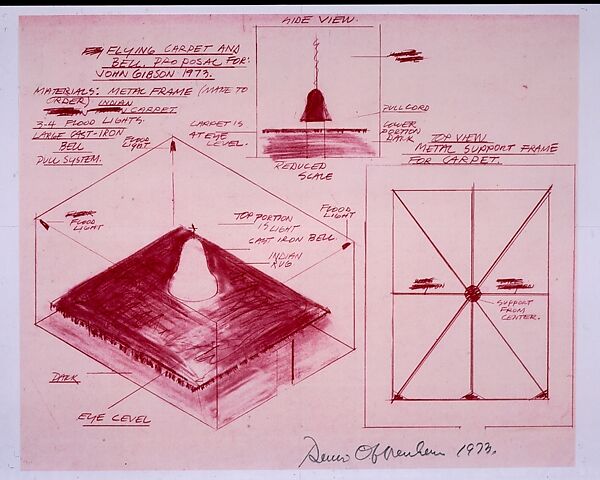 FLYING CARPET AND
BELL. PROPOSAL FOR:
JOHN GIBSON 1973.
MATERIALS: METAL FRAME (MADE TO
ORDER) INDIAN
CARPET
3-4 FLOOD LIGHTS.
LARGE CAST-IRON
BELL
PULL SYSTEM.
SIDE VIEW.
PULL CORD
LOWER
PORTION
DARK
CARPET IS
AT EYE
LEVEL.
REDUCED
SCALE
TOP VIEW
METAL SUPPORT FRAME
FOR CARPET.
FLOOD
LIGHT
FLOOD
LIGHT
FLOOD
LIGHT
TOP PORTION
IS LIGHT
CAST IRON BELL
INDIAN
RUG
SUPPORT
FROM
CENTER.
DARK
EYE LEVEL
Dennis Oppenheim 1973.